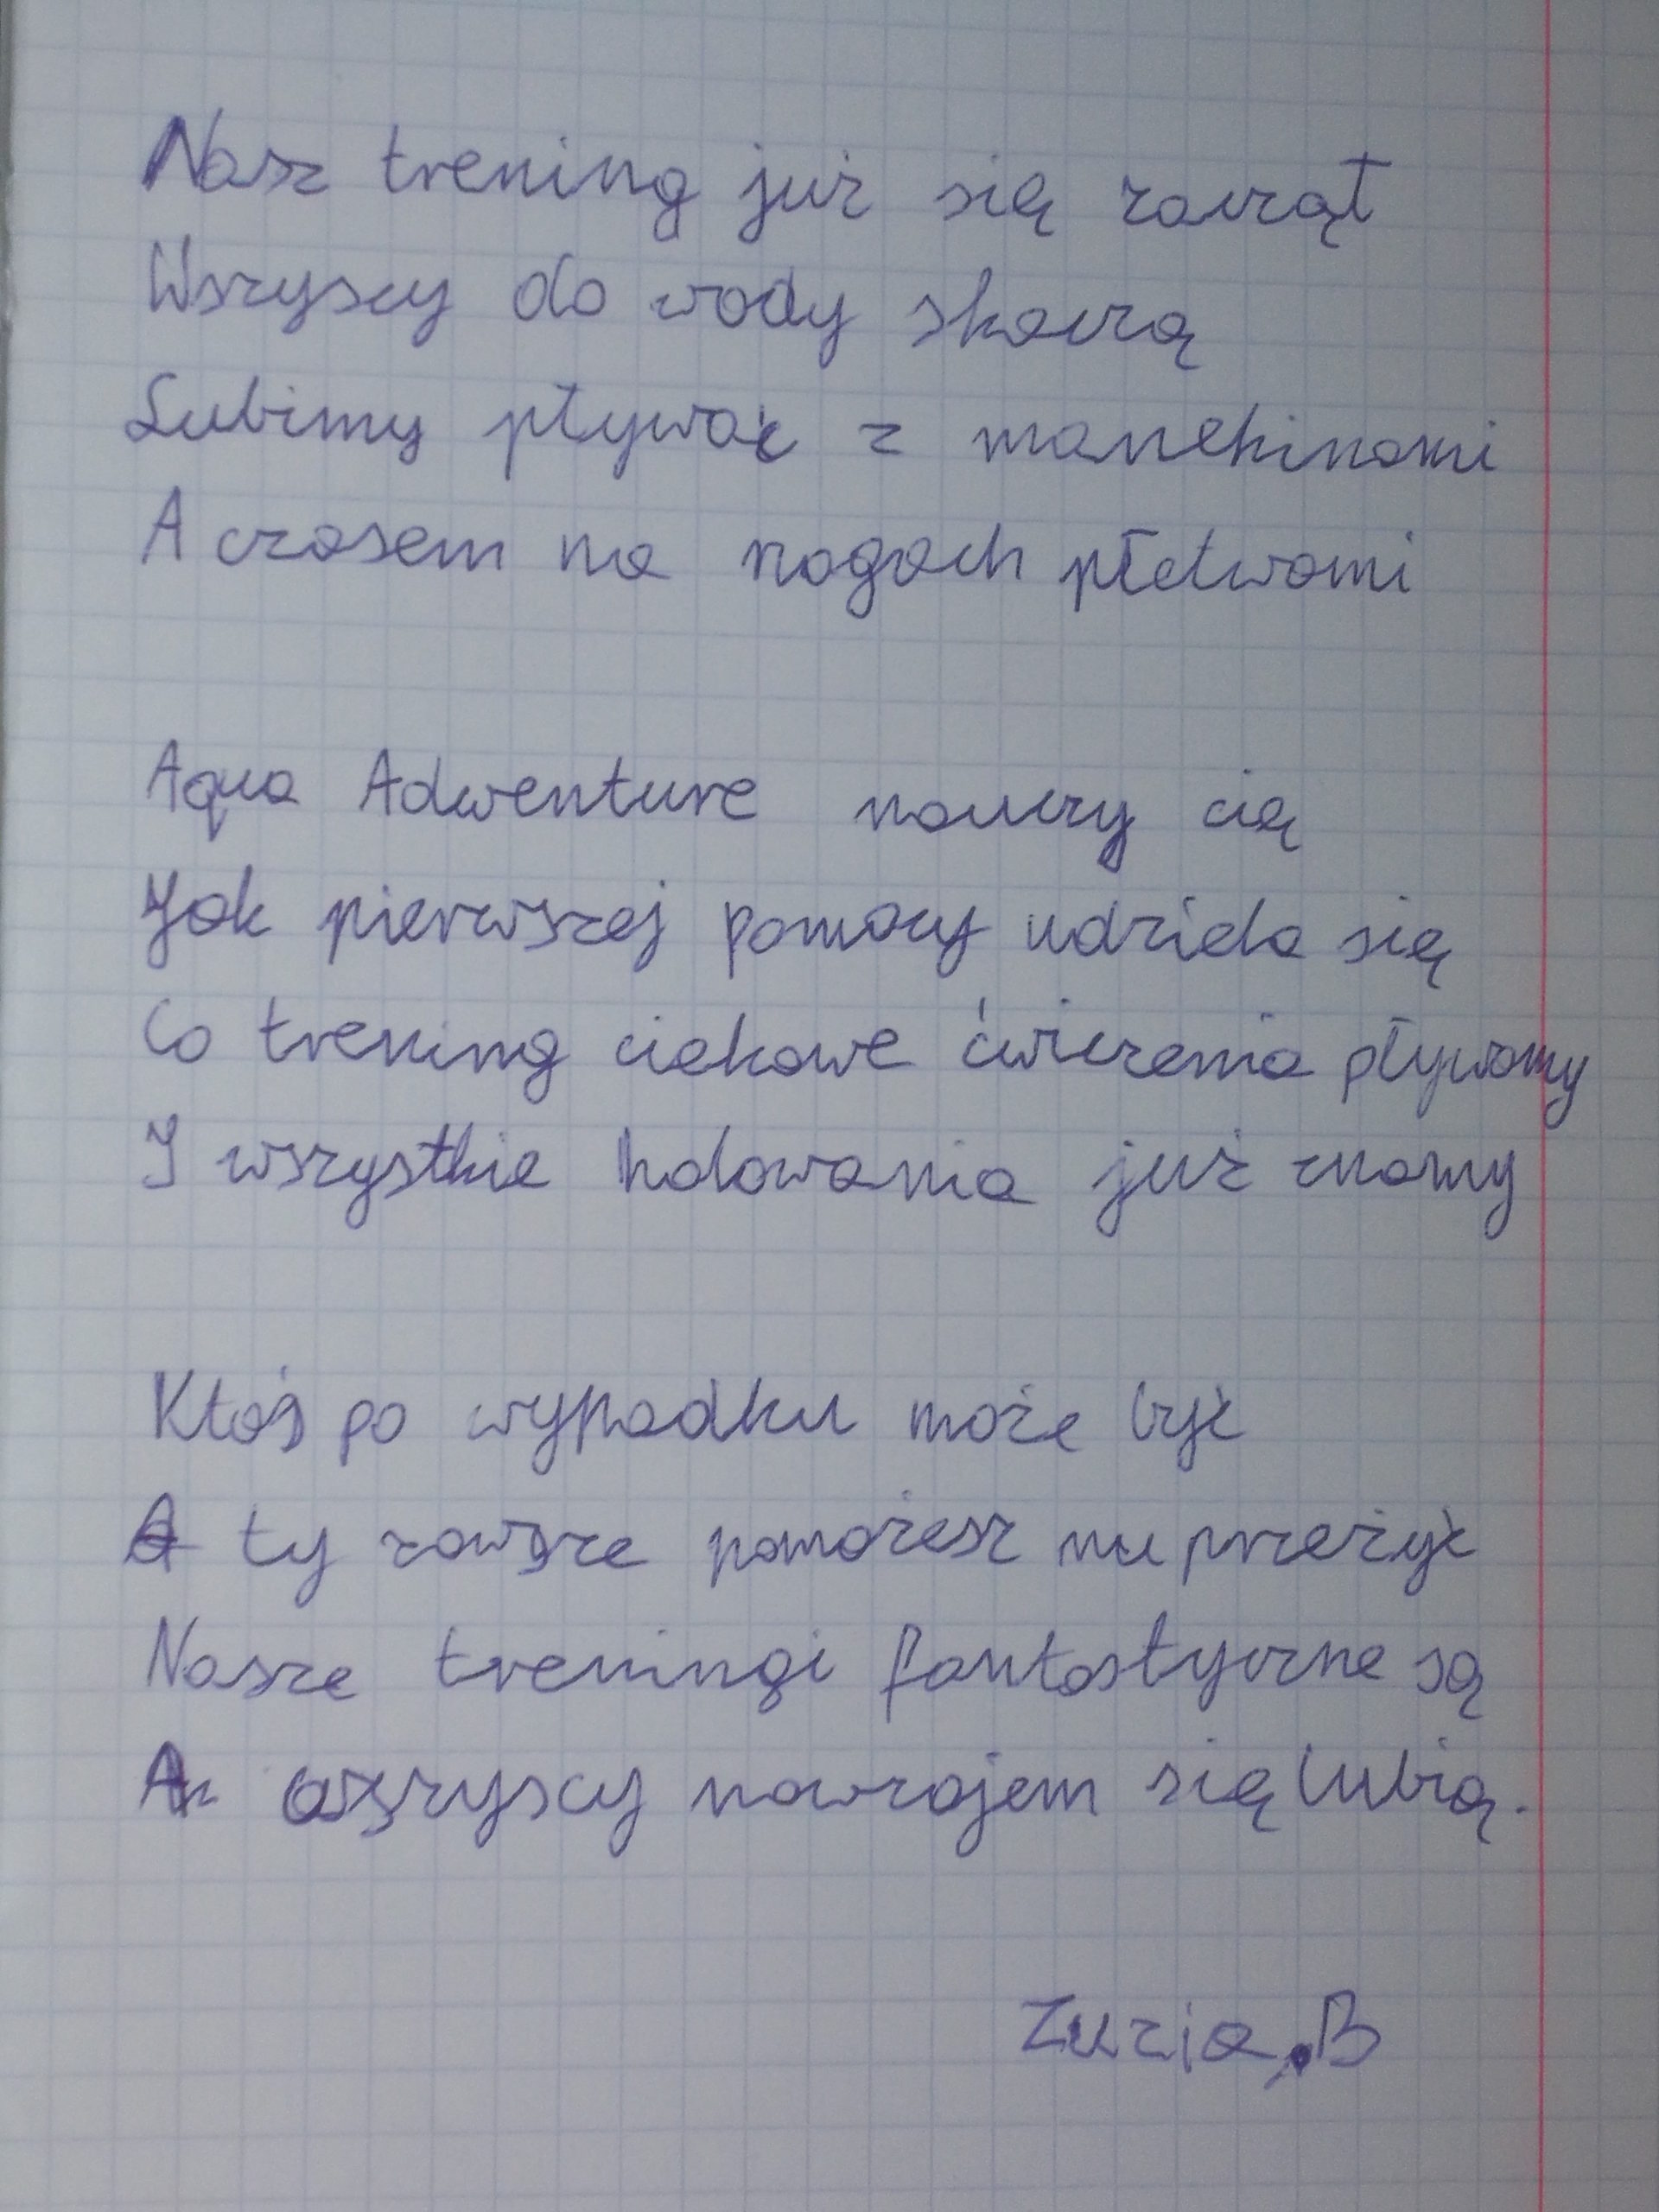 Nasz trening już się zaczął
Wszyscy do wody skaczą
Lubimy pływać z manekinami
A czasem na nogach płetwami
Aqua Adwenture nauczy cię
Jak pierwszej pomocy udziela się
Co trening ciekawe ćwiczenia pływamy
I wszystkie holowania już znamy
Ktoś po wypadku może być
A ty zawsze pomożesz mu przeżyć
Nasze treningi fantastyczne są
A wszyscy nawzajem się lubią.
Zuzia.B